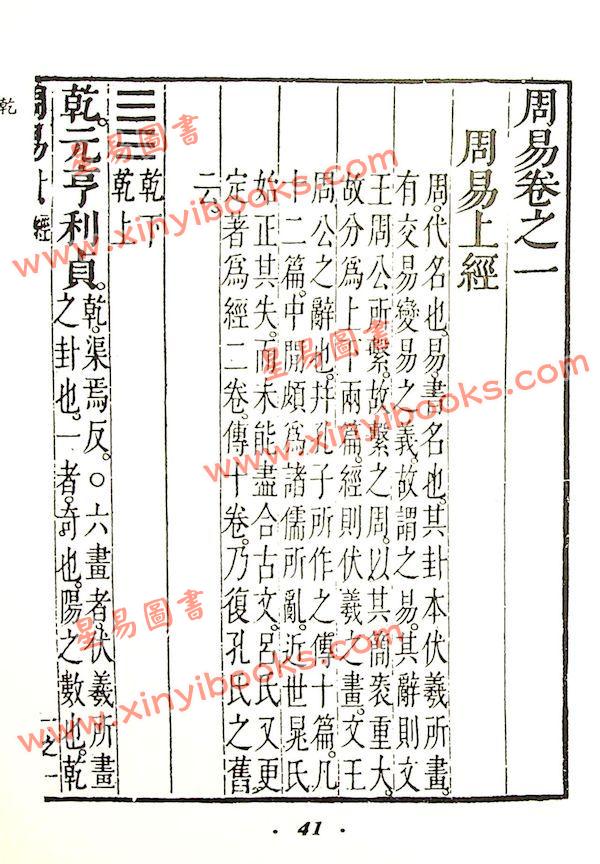 周易卷之一
周易上經
周代名也。易書名也。其卦本伏羲所畫。
有交易變易之義。故謂之易。其辭則文
王周公所繫。故繫之周。以其簡袠重大。
故分為上下兩篇。經則伏羲之畫。文王
周公之辭也。幷孔子所作之傳十篇。凡
十二篇。中間頗為諸儒所亂。近世晁氏
始正其失。而未能盡合古文。呂氏又更
定著為經二卷。傳十卷。乃復孔氏之舊
云。
乾下
乾上
乾。元亨利貞。乾。渠焉反。○六畫者。伏羲所畫
之卦也。一者。奇也。陽之數也。乾
經
一之一
乾
· 41 ·
星易圖書
www.xinyibooks.com
星易圖書
www.xinyibooks.com
星易圖書
www.xinyibooks.com